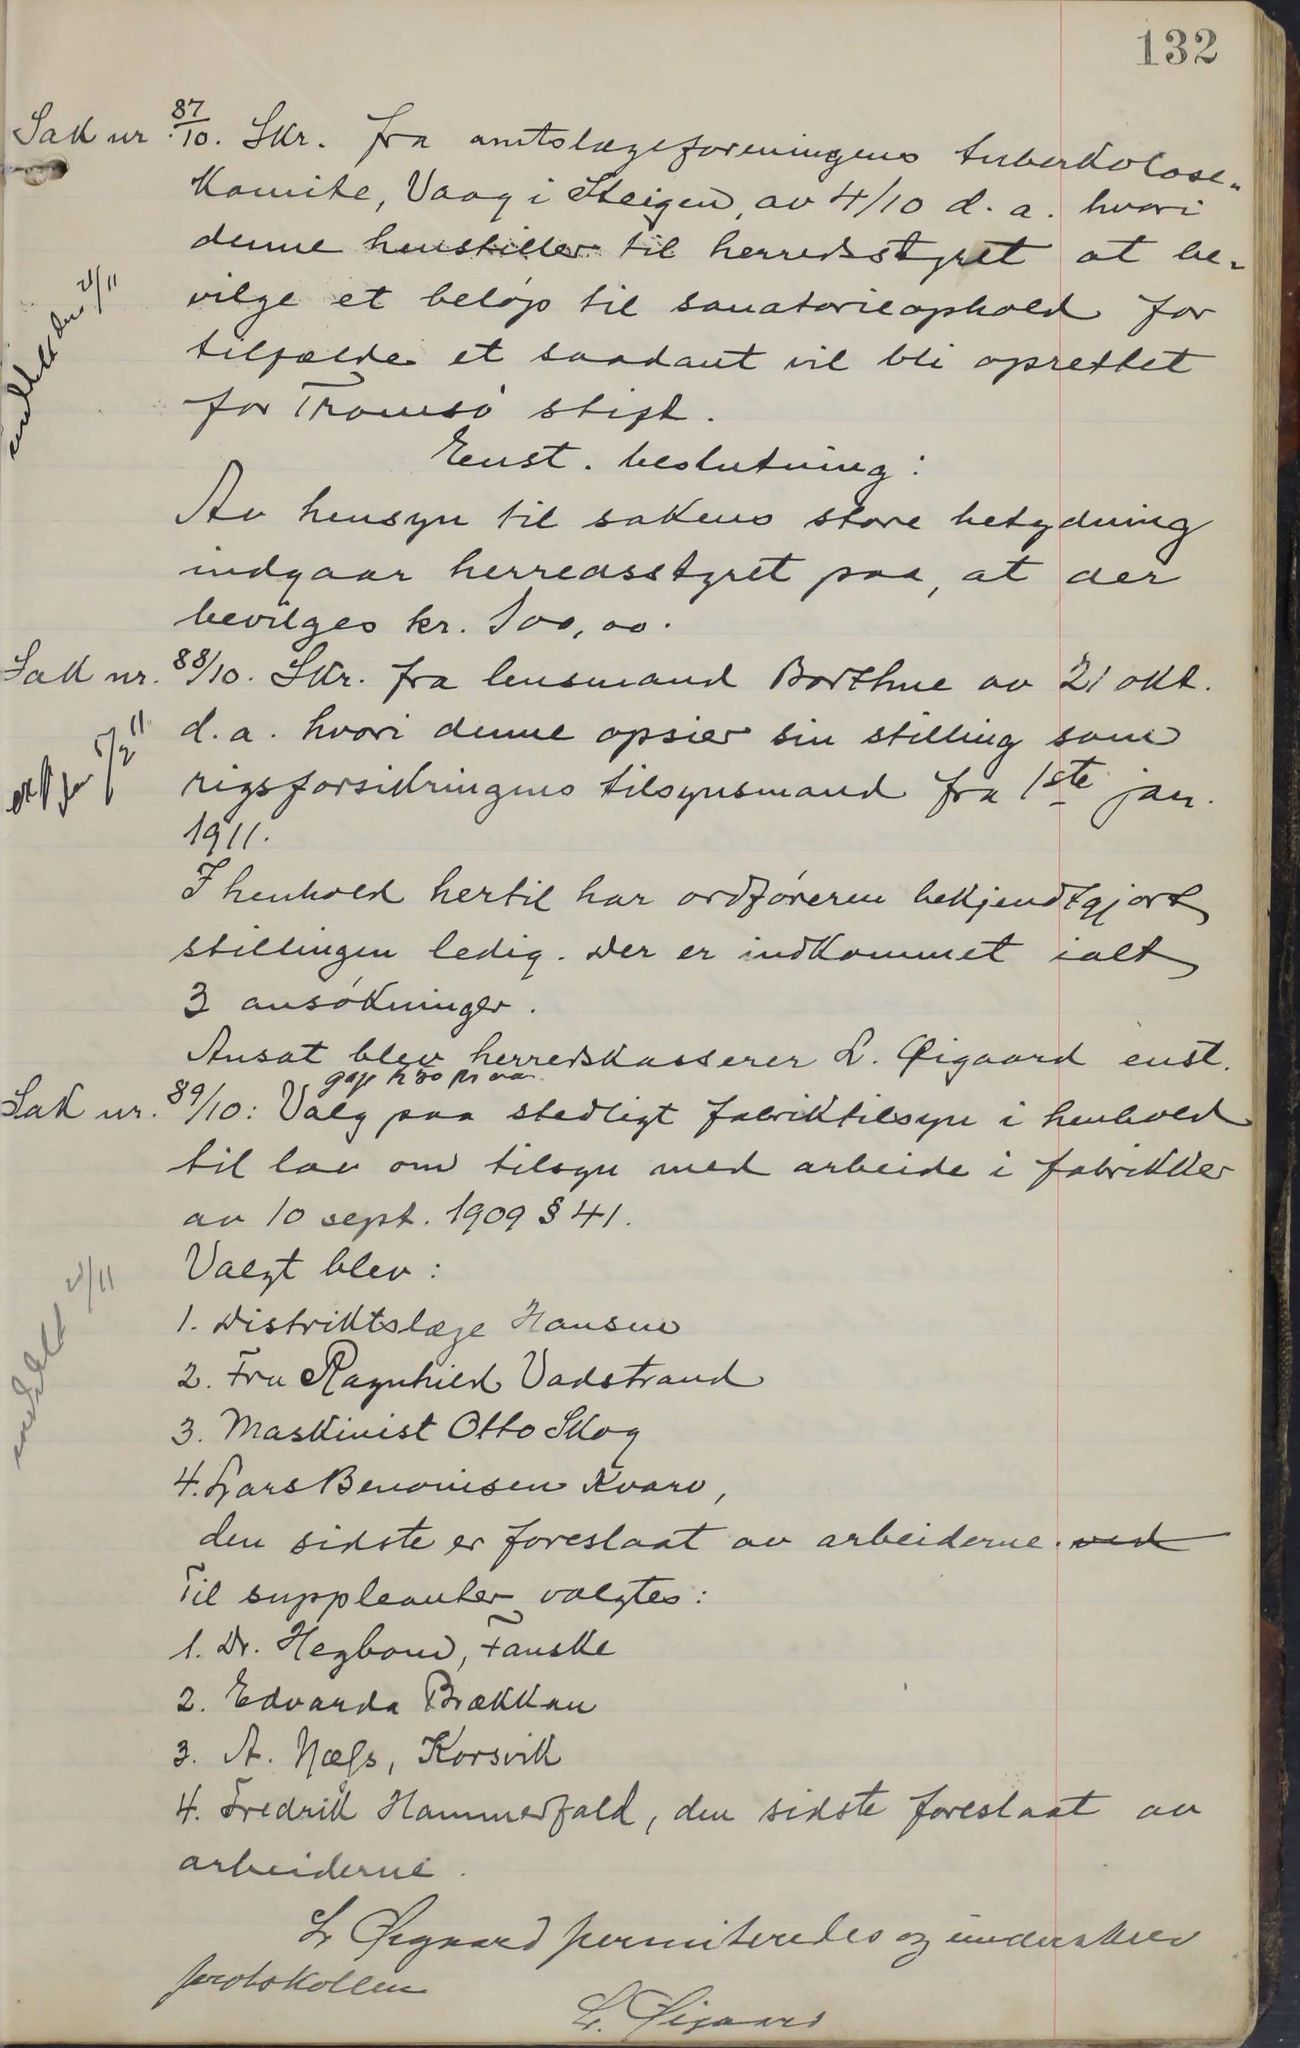 132
Sak nr 87/10. Skr. fra amtslægeforeningens tuberkolose-
komite, Vaag i Steigen, av 4/10 d. a. hvori
denne henstiller til herredsstyret at be-
vilge et beløp til sanatorieophold for
tilfælde et saadant vil bli oprettet
for Tromsø stift.
Enst. beslutning:
Av hensyn til sakens store betydning
indgaar herredsstyret paa, at der
bevilges kr. 100,00.
Sak nr. 88/10. Skr. fra lensmand Borthne av 21 okt.
d. a. hvori denne opsier sin stilling som
rigsforsikringens tilsynsmand fra 1ste jan.
1911.
I henhold hertil har ordføreren bekjendtgjort
stillingen ledig. Der er indkommet ialt
3 ansøkninger.
Ansat blev herredskasserer L. Øigaard enst.
Sak nr. 89/10: Valg paa stedligt fabriktilsyn i henhold
til lov om tilsyn med arbeide i fabrikker
av 10 sept. 1909 § 41.
Valgt blev:
1. Distriktslæge Hansen
2. Fru Ragnhild Vadstrand
3. Maskinist Otto Skog
4. Lars Benonisen Kvarv,
den sidste er foreslaat av arbeiderne. ved
Til suppleanter valgtes:
1. Dr. Hegbom, Fauske
2. Edvarda Brækkan
3. A. Næss, Korsvik
4. Fredrik Hammerfald, den sidste foreslaat av
arbeiderne.
L. Øigaard permiteredes og underskrev
protokollen
L. Øigaard